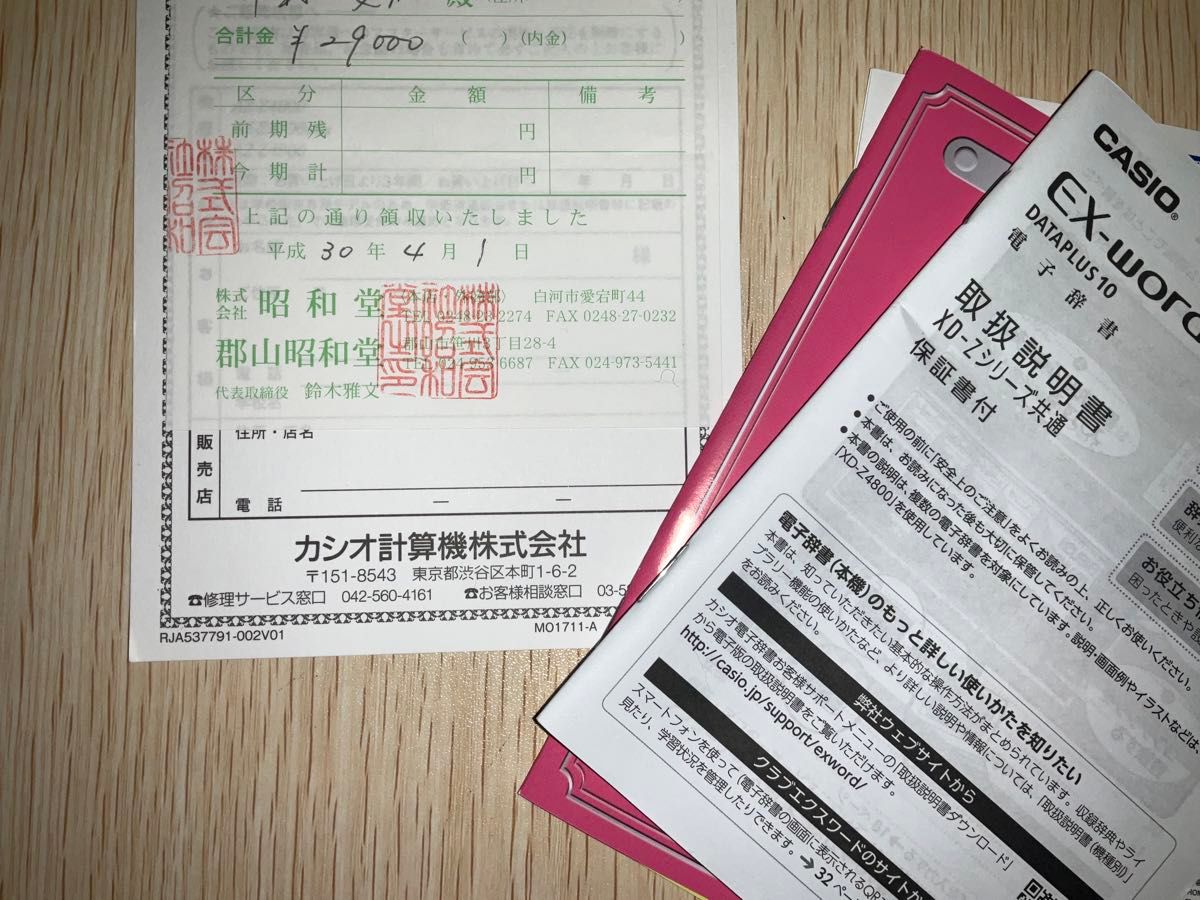 殿
合計金 ¥29000 ( )(内金) )
区 分 金 額 備 考
前 期 残 円
今 期 計 円
上記の通り領収いたしました
平成 30 年 4 月 1 日
株式会社 昭和堂 白河市愛宕町44
TEL 0248-23-2274 FAX 0248-27-0232
郡山昭和堂 郡山市笹川3丁目28-4
6687 FAX 024-973-5441
代表取締役 鈴木雅文
株式会
販売店
住所・店名
電 話 ー ー
カシオ計算機株式会社
〒151-8543 東京都渋谷区本町1-6-2
☎修理サービス窓口 042-560-4161 ☎お客様相談窓口 03-5
RJA537791-002V01 MO1711-A
CASIO®
EX-word
DATAPLUS 10
電子辞書
取扱説明書
XD-Zシリーズ共通
保証書付
●ご使用の前に「安全上のご注意」をよくお読みの上、正しくお使いください。
●本書は、お読みになった後も大切に保管してください。
●本書の説明は、複数の電子辞書を対象にしています。説明・画面例やイラストなどは
「XD-Z4800」を使用しています。
便利
お役立ち
困ったときや
電子辞書(本機)のもっと詳しい使いかたを知りたい
本書は、知っていただきたい基本的な操作方法がまとめられています。収録辞典やライ
ブラリー機能の使いかたなど、より詳しい説明や情報については、「取扱説明書(機種別)」
をお読みください。
弊社ウェブサイトから
カシオ電子辞書お客様サポートメニューの「取扱説明書ダウンロード」
から電子版の取扱説明書をご覧いただけます。
http://casio.jp/support/exword/
クラブエクスワードのサイトか
スマートフォンを使って(電子辞書の画面に表示されるQR
見たり、学習状況を管理したりできます。➔32ペー